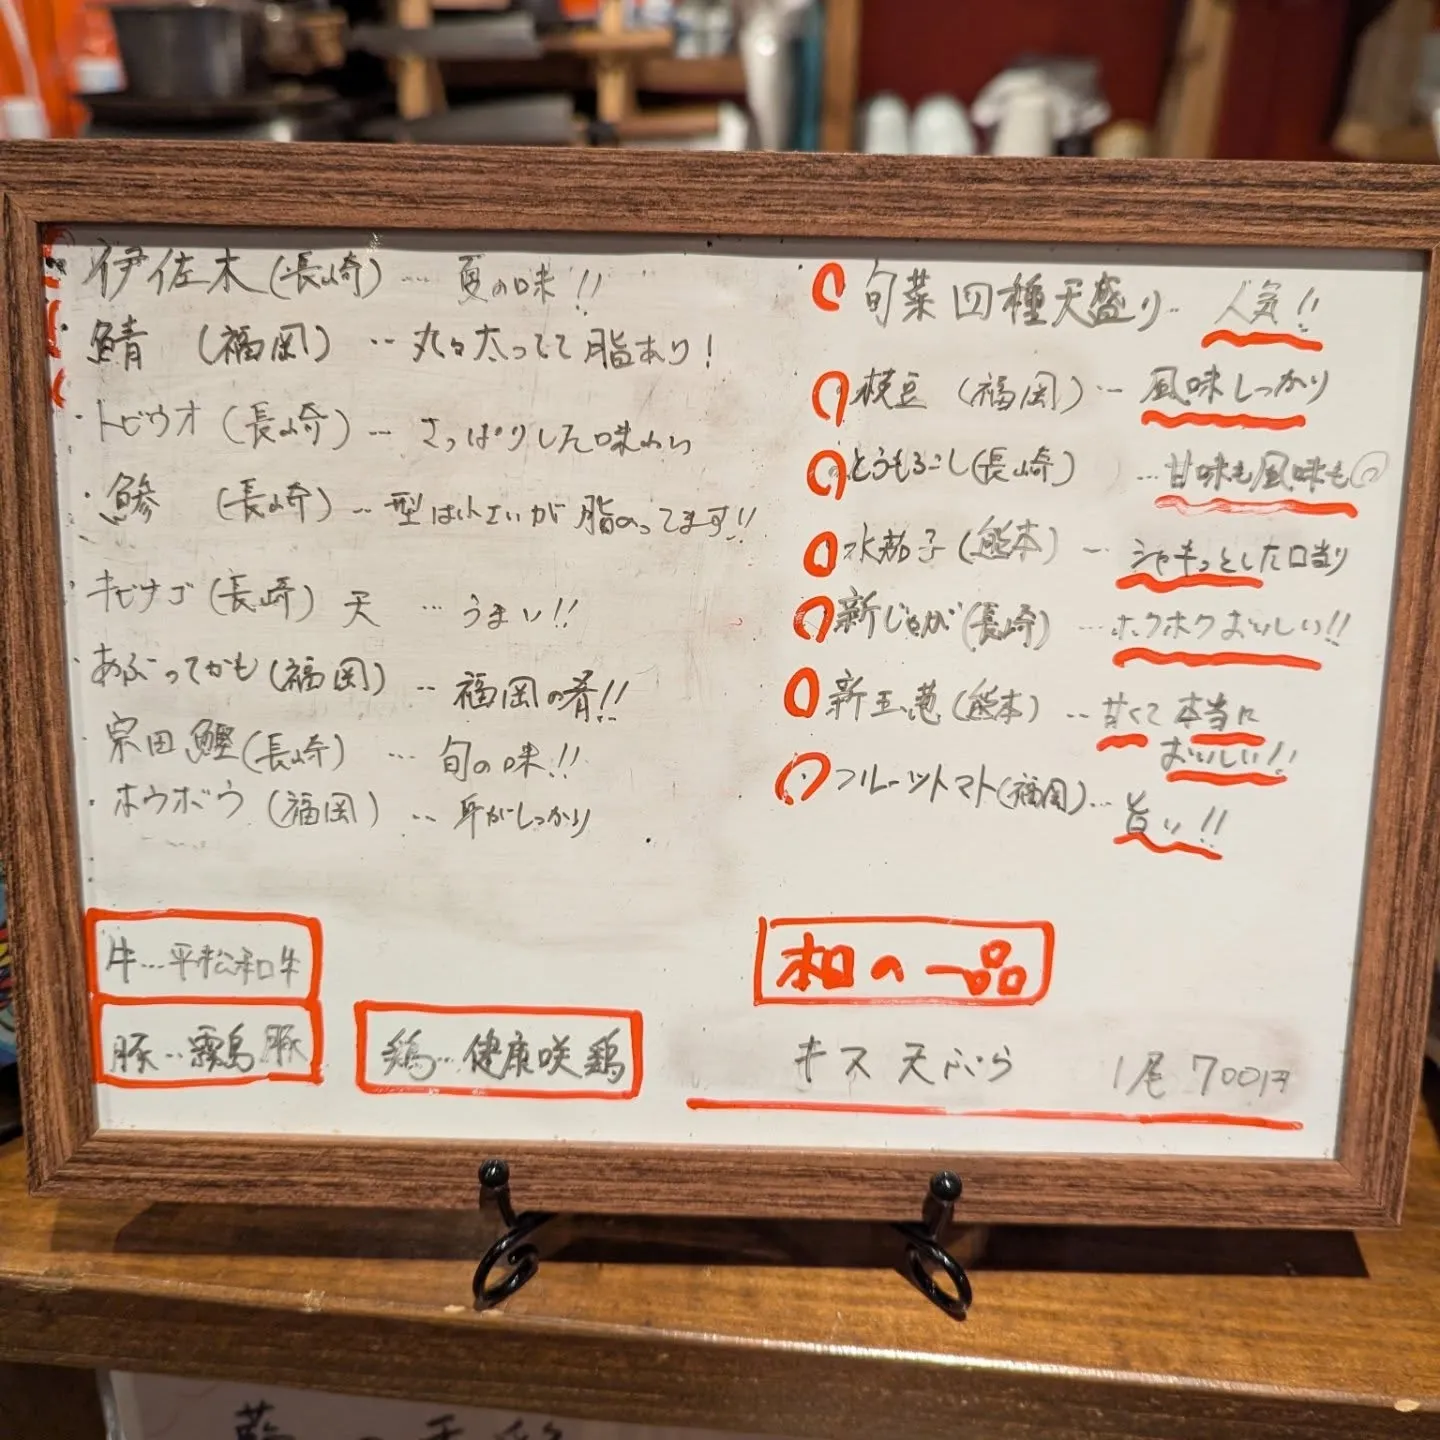 伊佐木(長崎)… 夏の味!!
・鯖 (福岡) ‥ 丸々太ってて脂あり!
・トビウオ(長崎)… さっぱりした味わい
・鯵 (長崎)‥型は小さいが脂のってます!!
・キビナゴ(長崎)天 … うまい!!
・あぶってかも(福岡) ‥ 福岡の肴!!
・宗田鰹(長崎) … 旬の味!!
・ホウボウ(福岡) ‥ 身がしっかり
牛…平松和牛
豚‥霧島豚
鶏…健康咲鶏
旬菜四種天盛り‥ 人気!!
枝豆(福岡)… 風味しっかり
とうもろこし(長崎) …甘味も風味も◎
水茄子(熊本)… シャキっとした口当り
新じゃが(長崎)…ホクホクおいしい!!
新玉葱(熊本)‥甘くて本当に
おいしい!!
フルーツトマト(福岡)…
旨い!!
の一品
キス天ぷら 1尾700円